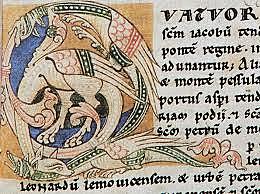 QVATVOR
scm̄ iacobū tend
pontē regine. in
adunantur; Al
& montē pessula
portus asp̄i tend
riam podii & scā
scm̄ petrū de mo
leonardū lemouicensem. & urbē petra